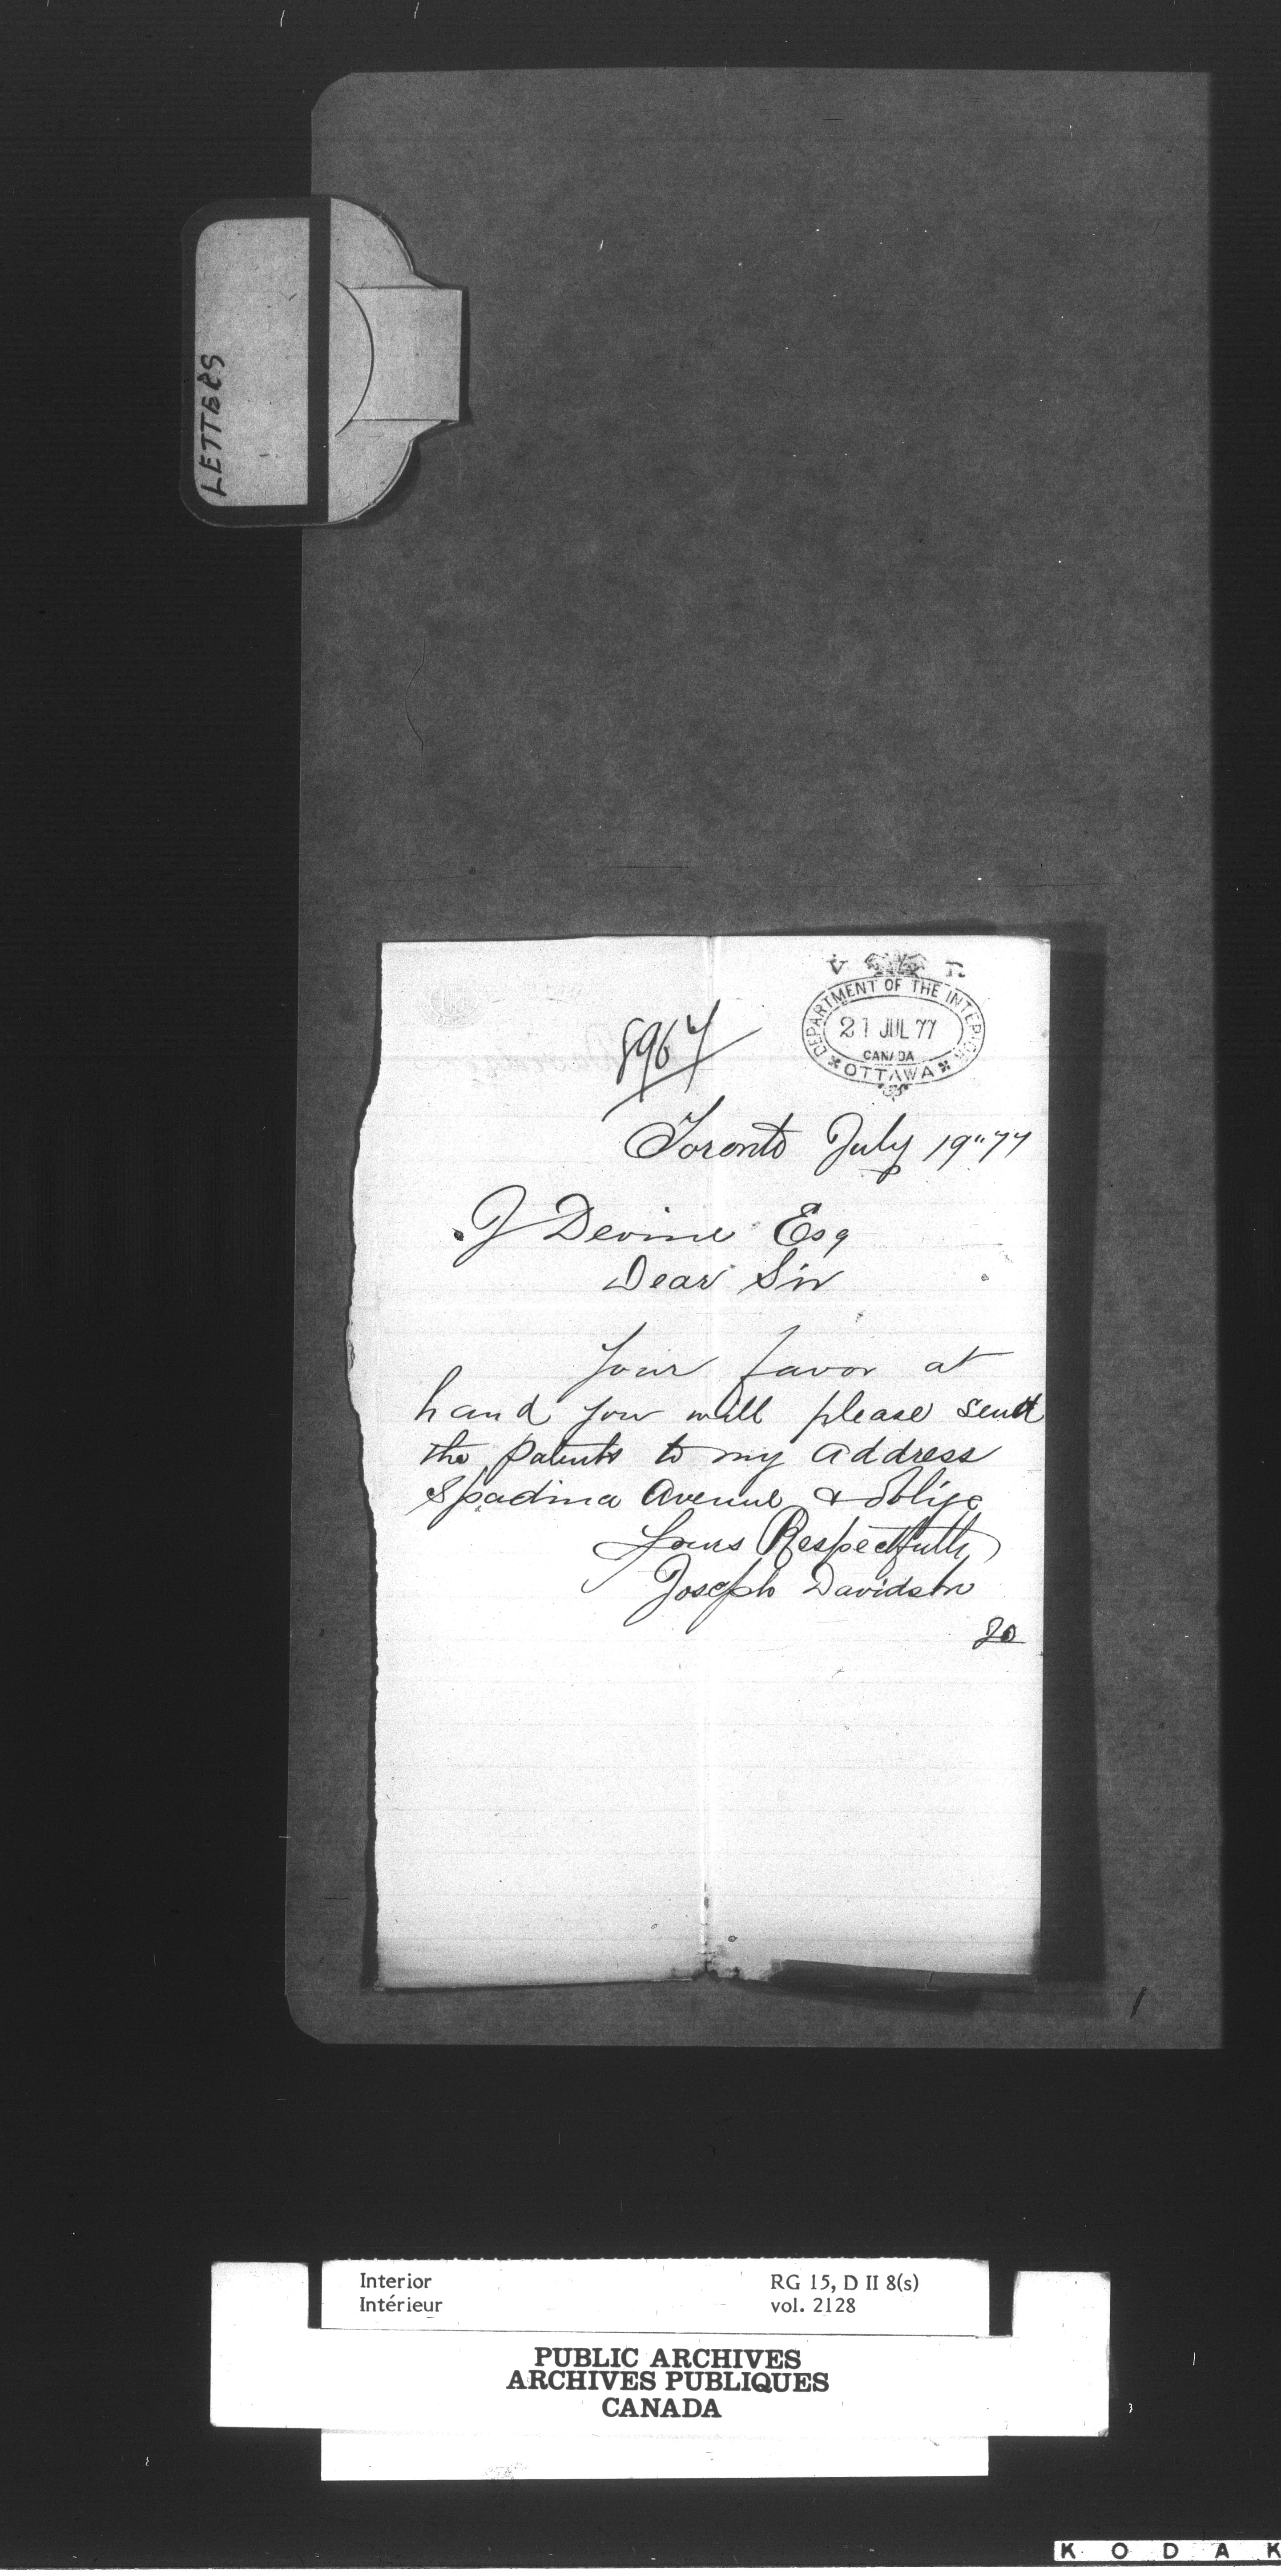 LETTERS
V R
DEPARTMENT OF THE INTERIOR
21 JUL 77
CANADA
OTTAWA
8967
Toronto July 19"77
J Devine Esq
Dear Sir
Your favor at
hand you will please send
the patents to my address
Spadina Avenue & oblige
Yours Respectfully
Joseph Davidson
20
Interior
Intérieur
RG 15, D II 8(s)
vol. 2128
PUBLIC ARCHIVES
ARCHIVES PUBLIQUES
CANADA
KODAK